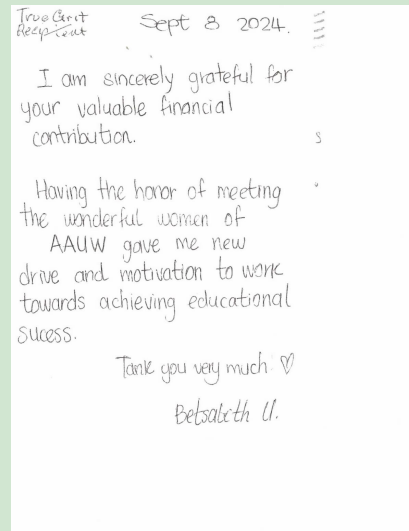 True Grit
Recipient
Sept 8 2024.
I am sincerely grateful for
your valuable financial
contribution.
Having the honor of meeting
the wonderful women of
AAUW gave me new
drive and motivation to work
towards achieving educational
sucess.
Tank you very much ♡
Betsabeth U.